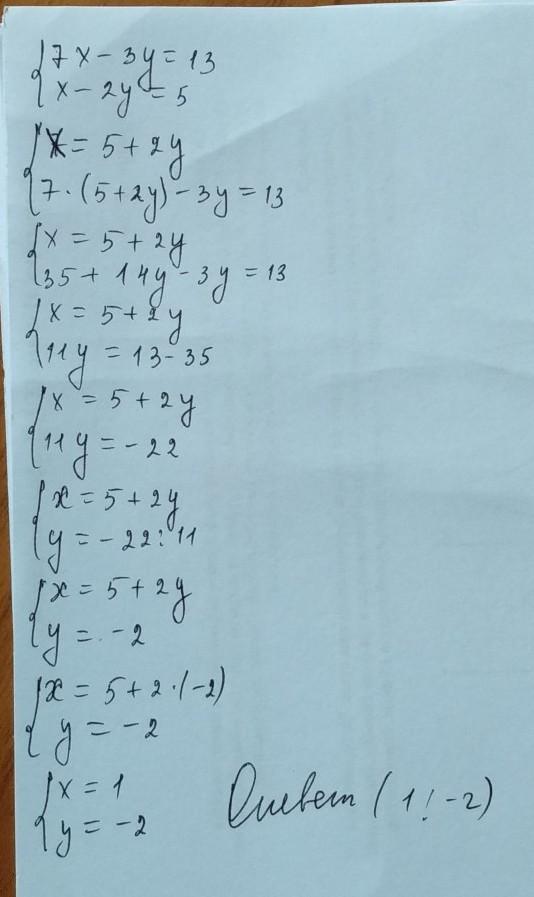 7x - 3y = 13
x - 2y = 5
x = 5 + 2y
7 · (5 + 2y) - 3y = 13
x = 5 + 2y
35 + 14y - 3y = 13
x = 5 + 2y
11y = 13 - 35
x = 5 + 2y
11y = - 22
x = 5 + 2y
y = - 22 : 11
x = 5 + 2y
y = - 2
x = 5 + 2 · (-2)
y = - 2
x = 1
y = - 2 Ответ (1 ; -2)